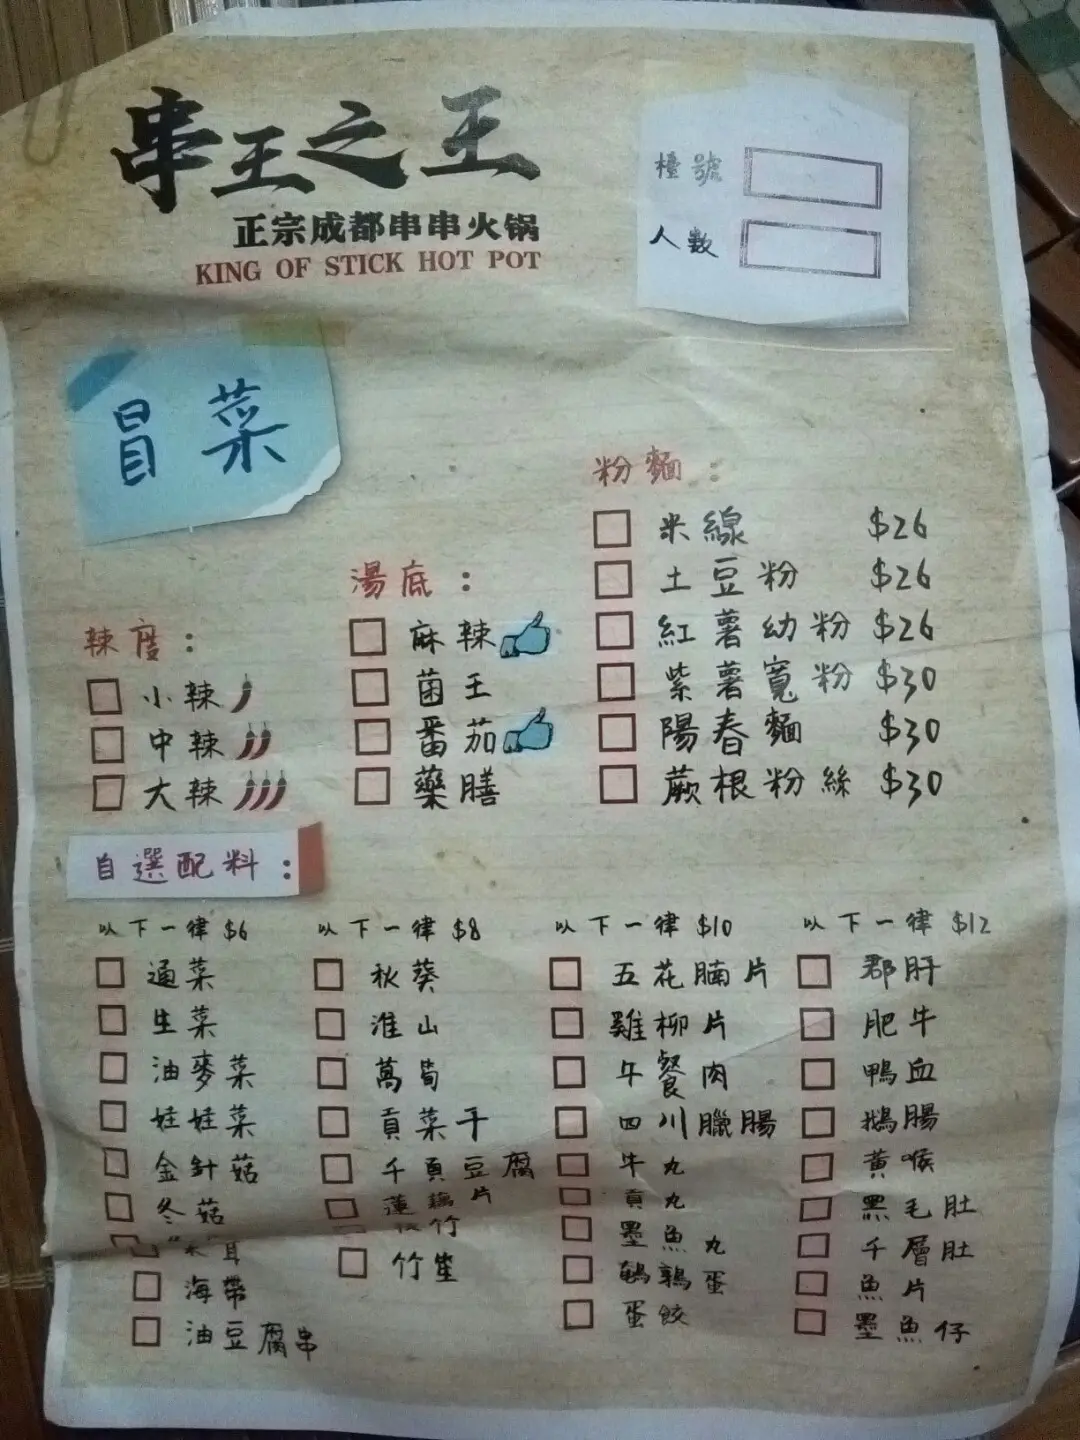 串王之王
正宗成都串串火锅
KING OF STICK HOT POT
檯號
人數
冒菜
粉麵：
米線 $26
土豆粉 $26
紅薯幼粉 $26
紫薯寬粉 $30
陽春麵 $30
蕨根粉絲 $30
湯底：
麻辣
菌王
番茄
藥膳
辣度：
小辣
中辣
大辣
自選配料：
以下一律 $6
通菜
生菜
油麥菜
娃娃菜
金針菇
冬菇
耳
海帶
油豆腐串
以下一律 $8
秋葵
淮山
萵筍
貢菜干
千頁豆腐
蓮藕片
竹
竹笙
以下一律 $10
五花腩片
雞柳片
午餐肉
四川臘腸
牛丸
貢丸
墨魚丸
鵪鶉蛋
蛋餃
以下一律 $12
郡肝
肥牛
鴨血
鵝腸
黃喉
黑毛肚
千層肚
魚片
墨魚仔